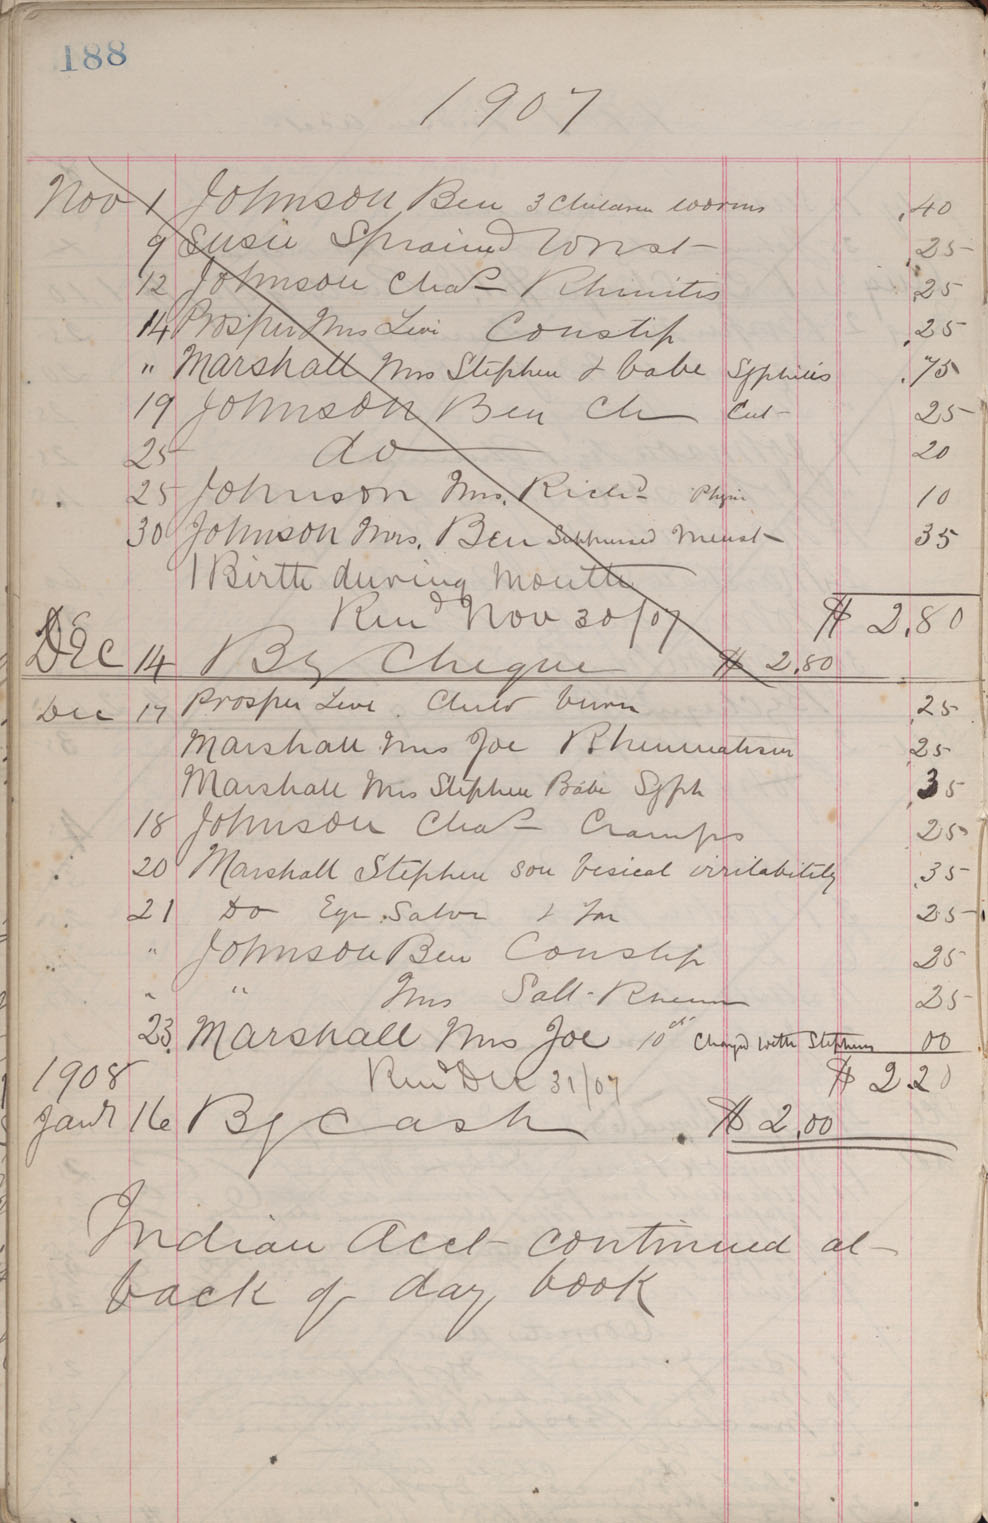 188
1907
Nov 1 Johnson Ben 3 Children worms .40
9 Susie Sprained Wrist .25
12 Johnson Chas Rhinitis .25
14 Prosper Mrs Levi Constip .25
" Marshall Mrs Stephen & babe Syphilis .75
19 Johnson Ben Ch Cut 25
25 do 20
25 Johnson Mrs. Richd Physic 10
30 Johnson Mrs. Ben Suppressed Menst 35
1 Birth during Month
Rend Nov 30/07 $ 2.80
Dec 14 By Cheque $ 2.80
Dec 17 Prosper Levi Child burn .25
Marshall Mrs Joe Rheumatism 25
Marshall Mrs Stephen Babe Syph .35
18 Johnson Chas Cramps 25
20 Marshall Stephen son vesical irritability .35
21 Do Eye Salve & 25
" Johnson Ben Constip 25
" " Mrs Salt-Rheum 25
23 Marshall Mrs Joe 10 cts Charged with Stephens 00
1908 Rend Dec 31/07 $ 2.20
Jany 16 By Cash $ 2.00
Indian Acct continued at
back of day book